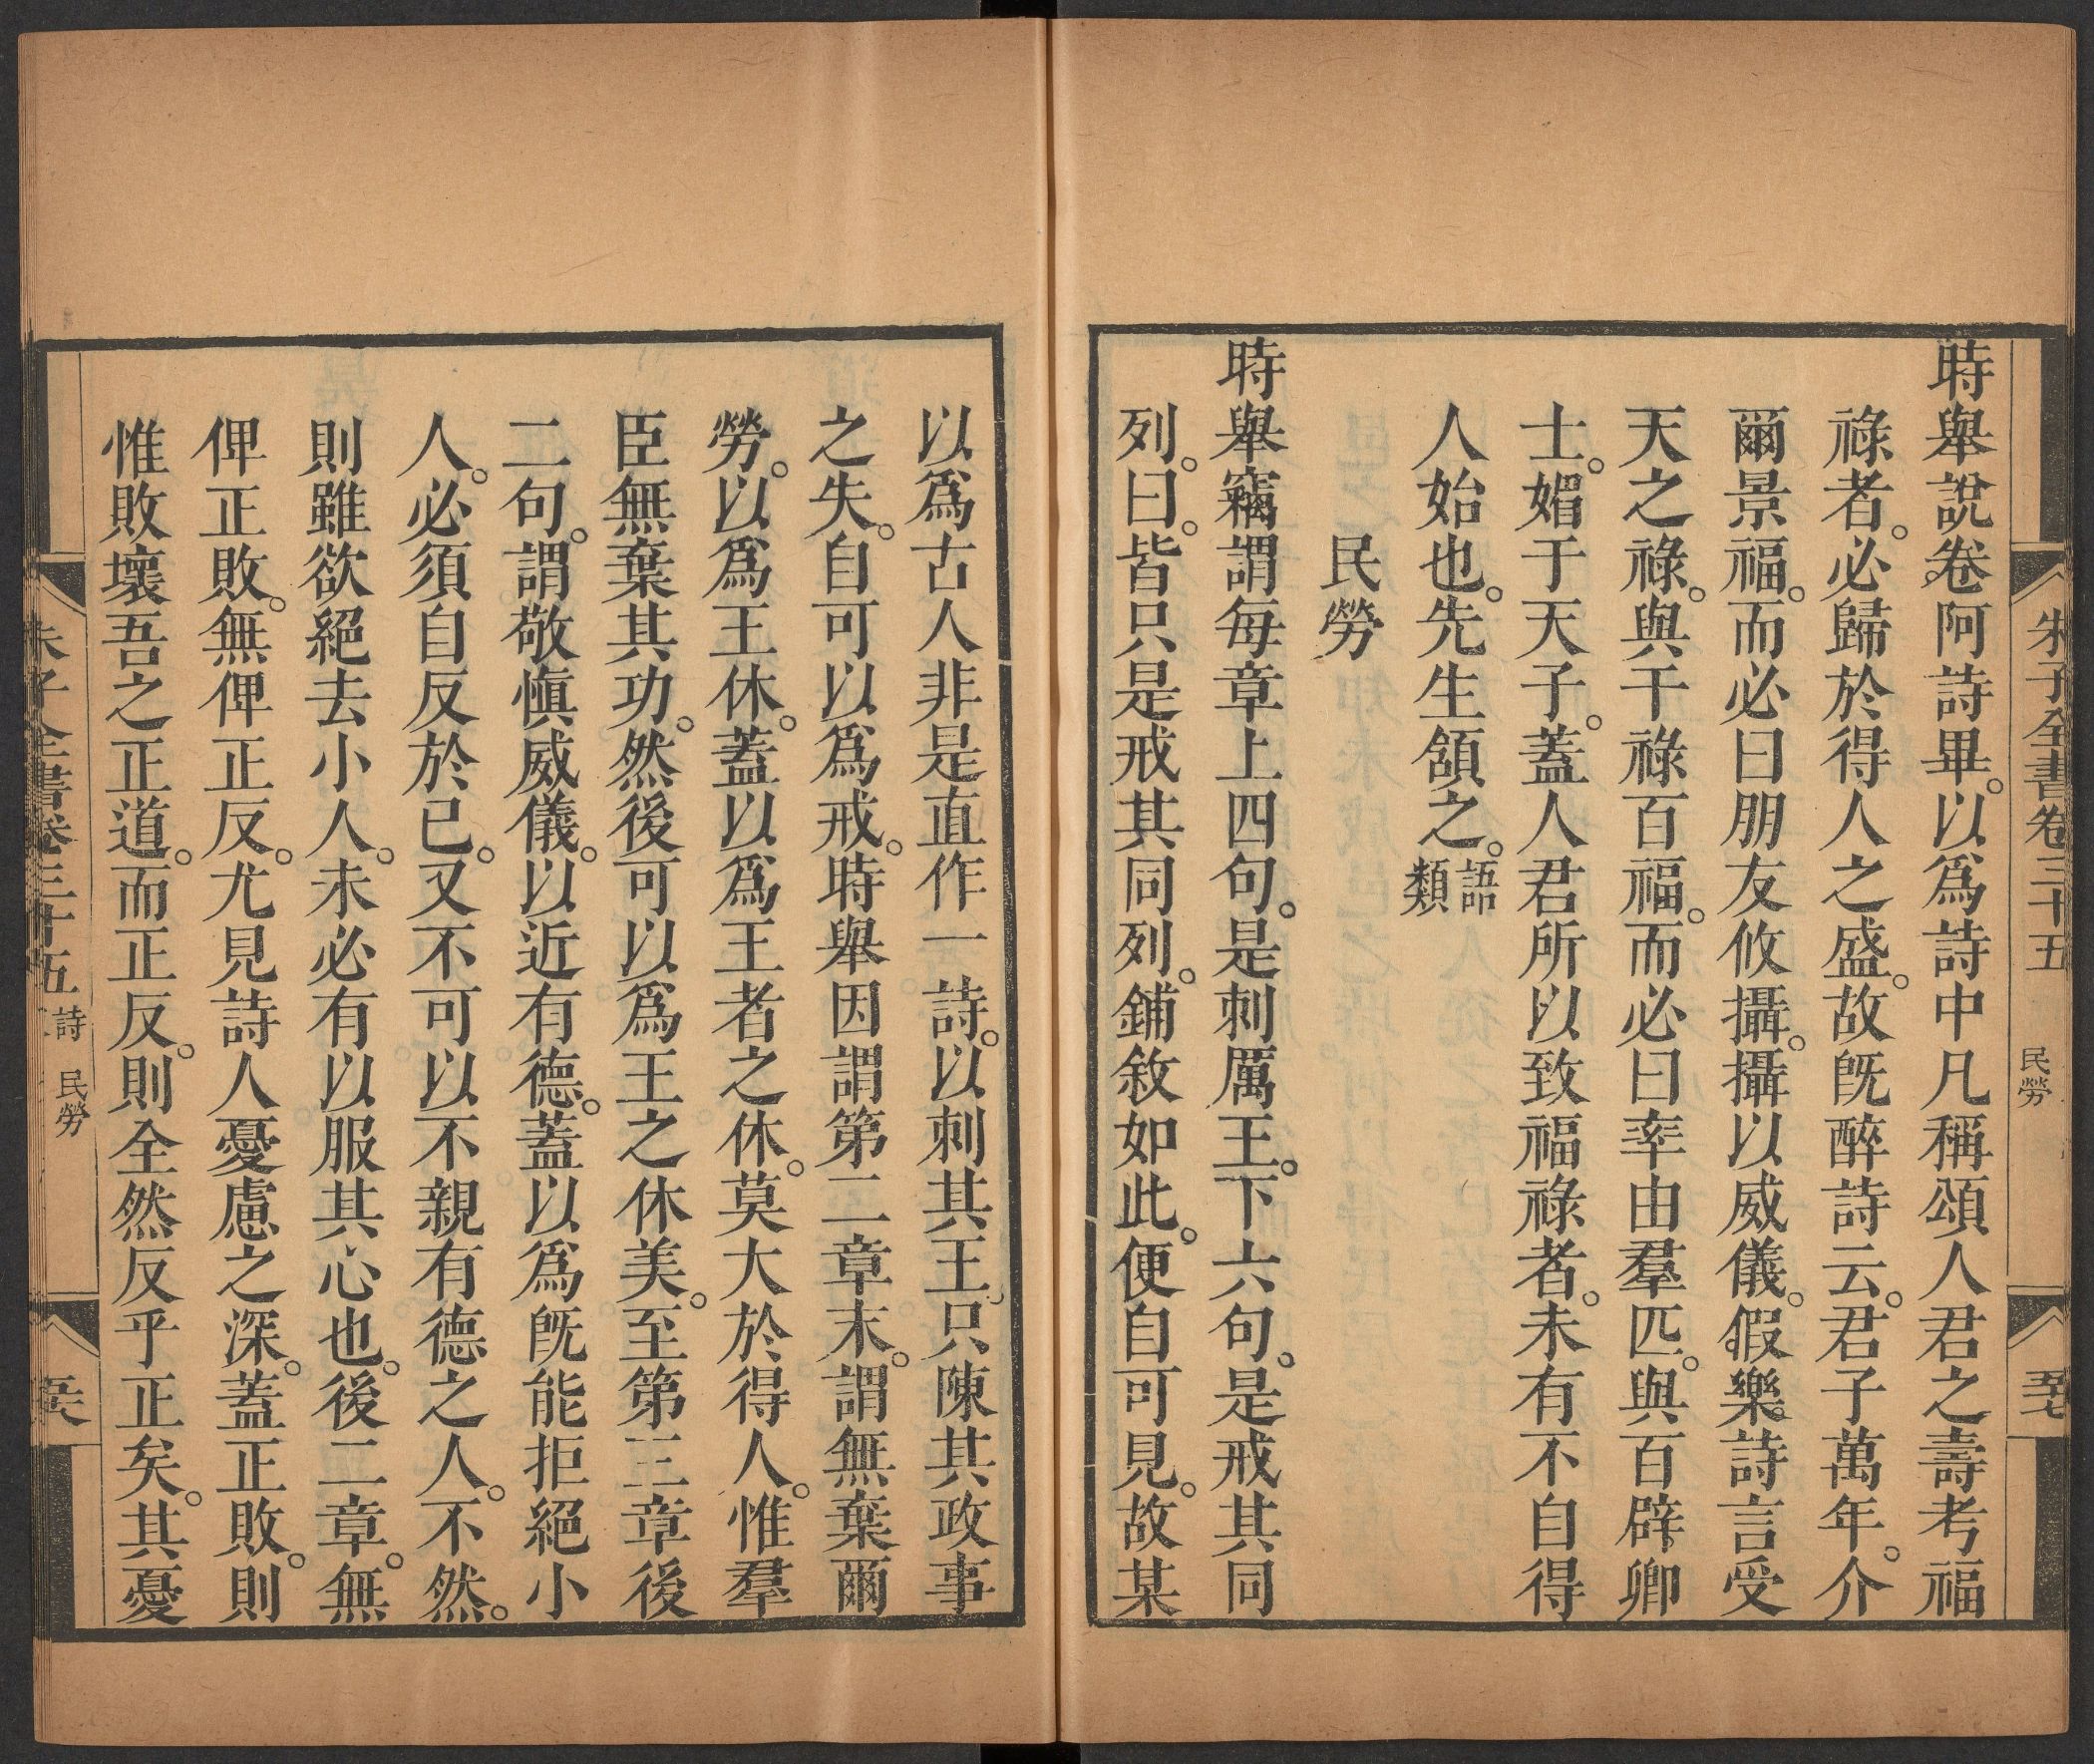 朱子全書卷三十五
民勞
時舉說卷阿詩畢。以爲詩中凡稱頌人君之壽考福
祿者。必歸於得人之盛。故旣醉詩云。君子萬年。介
爾景福。而必曰朋友攸攝。攝以威儀。假樂。詩言受
天之祿。與干祿百福。而必曰率由羣匹。與百辟卿
士。媚于天子。蓋人君所以致福祿者。未有不自得
人始也。先生頷之。語類
民勞
時舉竊謂每章上四句。是刺厲王。下六句。是戒其同
列。曰。皆只是戒其同列。鋪敘如此。便自可見。故某
以爲古人非是直作一詩。以刺其王。只陳其政事
之失。自可以爲戒。時舉因謂第二章末。謂無棄爾
勞。以爲王休。蓋以爲王者之休。莫大於得人。惟羣
臣無棄其功。然後可以爲王之休美。至第三章後
二句。謂敬愼威儀。以近有德。蓋以爲旣能拒絕小
人。必須自反於已。又不可以不親有德之人。不然。
則雖欲絕去小人。未必有以服其心也。後二章。無
俾正敗。無俾正反。尤見詩人憂慮之深。蓋正敗。則
惟敗壞吾之正道。而正反。則全然反乎正矣。其憂
朱子全書卷三十五 詩 民勞